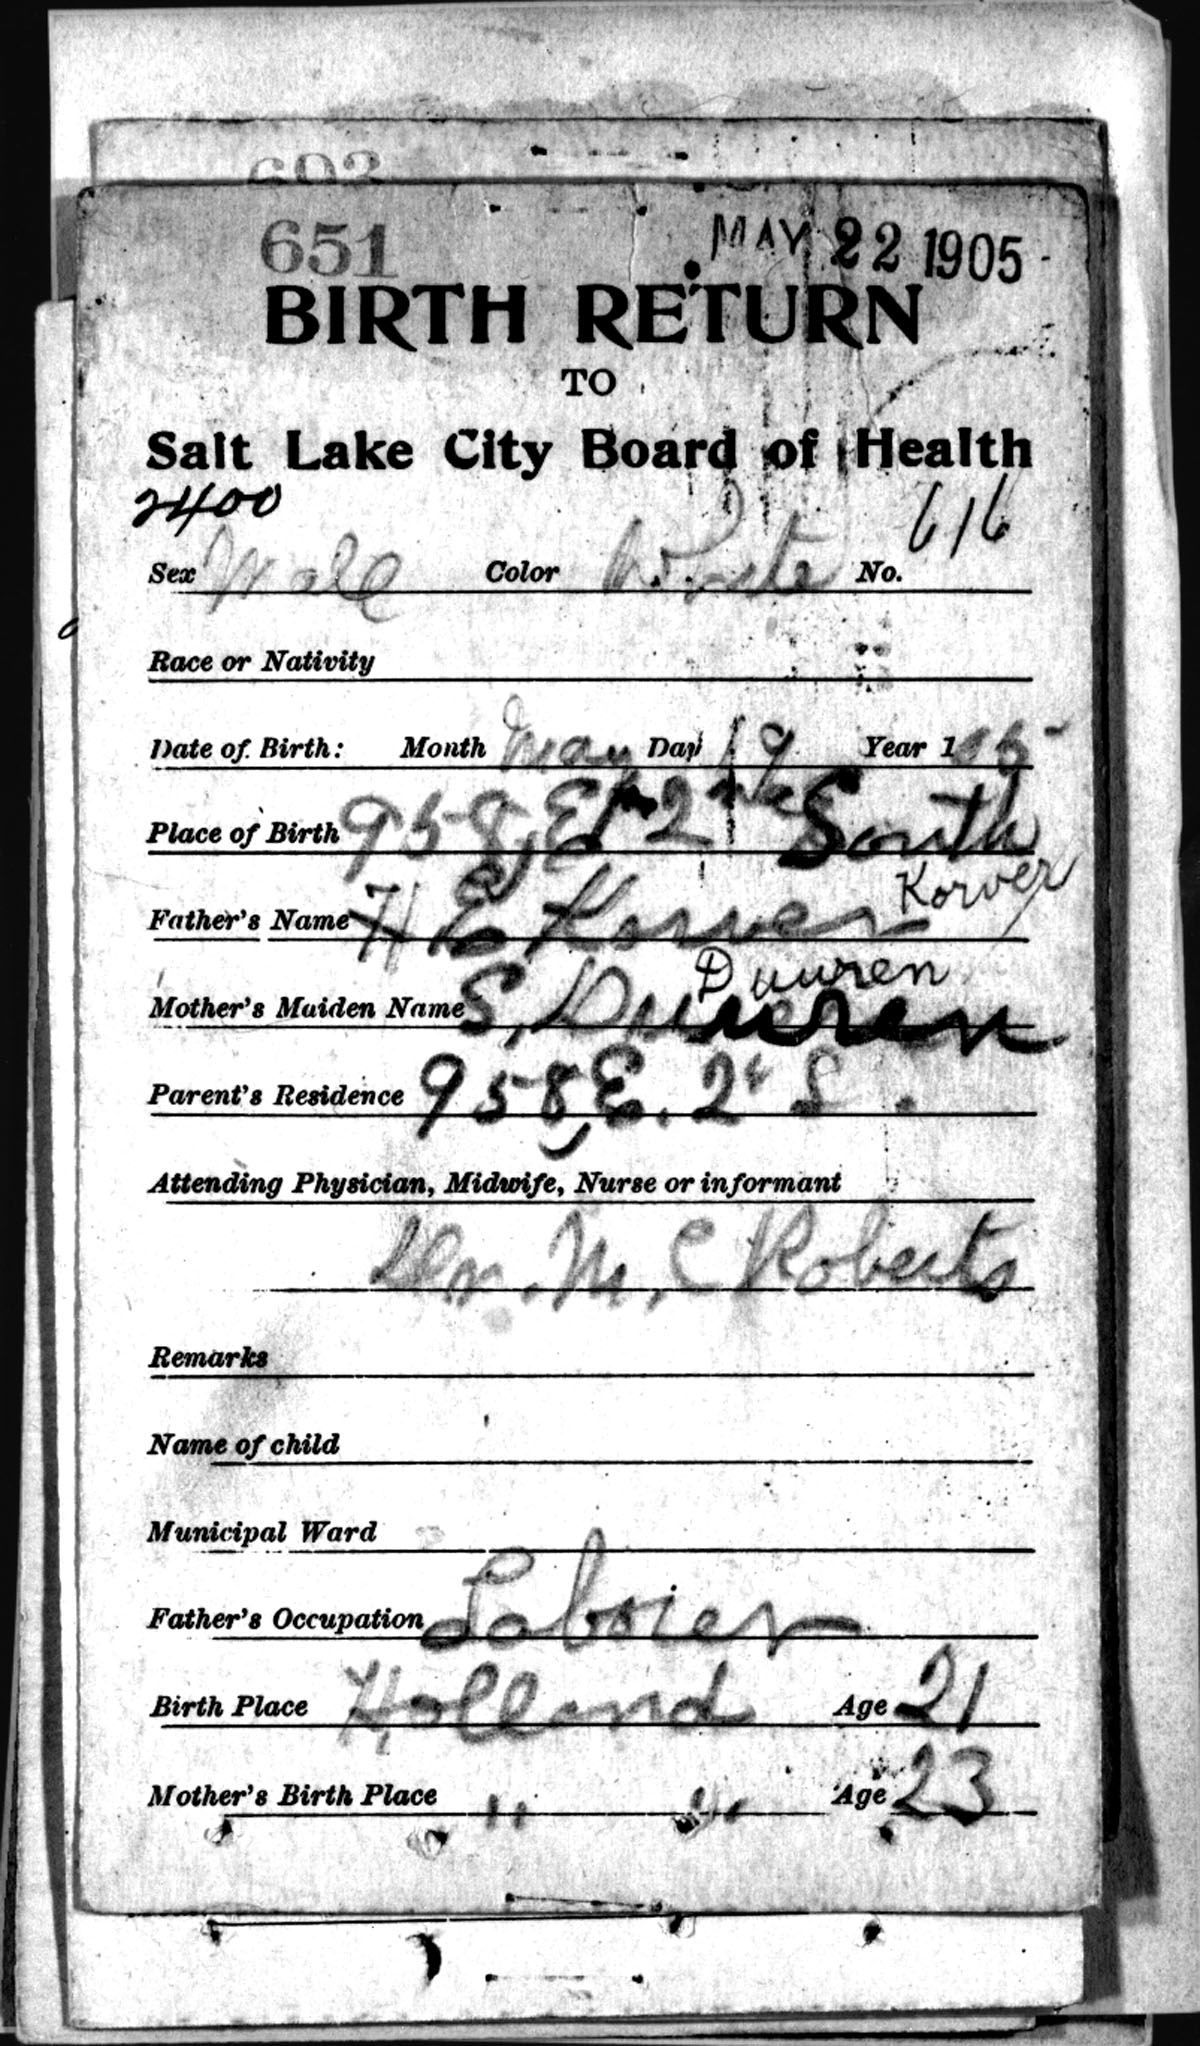 693
651 MAY 22 1905
BIRTH RETURN
TO
Salt Lake City Board of Health
2400 616
Sex Male Color White No.
Race or Nativity
Date of Birth: Month May Day 19 Year 105
Place of Birth 958, E 2 South
Korver
Father's Name H E Korver
Duuren
Mother's Maiden Name S, Duuren
Parent's Residence 958 E. 2d S.
Attending Physician, Midwife, Nurse or informant
Dr. M. C Roberts
Remarks
Name of child
Municipal Ward
Father's Occupation Laborer
Birth Place Holland Age 21
Mother's Birth Place " " Age 23